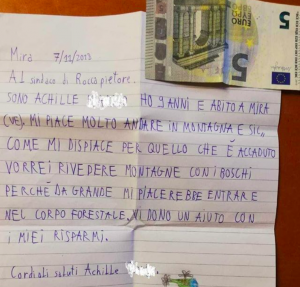 5 EURO
5
Mira 7/12/2018
Al sindaco di Rocca pietore.
SONO ACHILLE HO 9 ANNI E ABITO A MIRA
(VE). MI PIACE MOLTO ANDARE IN MONTAGNA E SIC
COME MI DISPIACE PER QUELLO CHE È ACCADUTO
VORREI RIVEDERE MONTAGNE CON I BOSCHI
PERCHÉ DA GRANDE MI PIACEREBBE ENTRARE
NEL CORPO FORESTALE, VI DONO UN AIUTO CON
I MIEI RISPARMI.
Cordiali saluti Achille